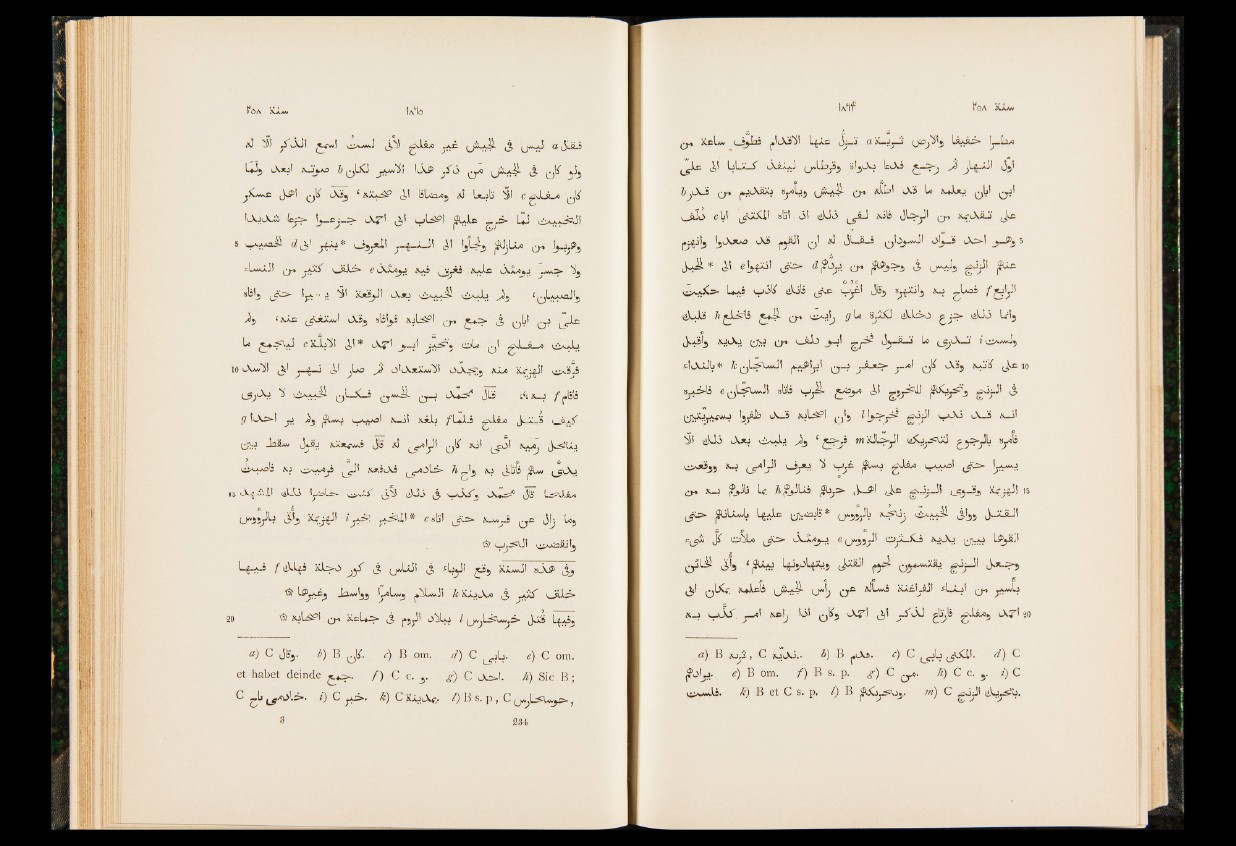 سنة ٢٥٨ ١٨٦٤
مطرا خفيفا والارض ثريّة a تزلّ عنها الاقدام فطوّف ساعة من
اوّل النهار ثم رجع فدعا بدواة وقرطاس لينفذ كتابا الى علىّ
ابن ابان يعلمه ما قد اظلّه من الجيش ويأمره بتقديم من يقدر b
على تقديمه من الرجال فانه لفى ذلك اذ اتاه المكتنى ابا c دُلَف
وهو احد قوّاد السودان فقال له ان القوم قد صعدوا وانهزم 5
عنهم الزنج وليس فى وجوههم من يردّهم d حتى انتهوا e الى * الحبل
الرابع f فصاح به وانتهره وقال اغرُبْ عنى فانك كاذب فيما حكيت
وانما ذلك جزع دخلك لكثرة ما g رايت من الجمع فانخلع h قلبك
ولست i تدرى ما تقول فخرج ابو دلف من بين يديه وأقبل
على كاتبه وقد كان امر جعفر بن ابراهيم السجّان k *بالنداء 10
فى الزنج وتحريكهم للخروج الى موضع الحرب فاتاه السجّان e فاخبره
انه قد ندب الزنج فخرجوا l وان اصحابه قد ظفروا بسميريّتين
فأمره بالرجوع لتحريك الرجّالة m فرجع، ولم يلبث بعد ذلك الّا
يسيرا حتى اصيب مفلح بسهم غرب لا يعرف الرامى به ووقعت
الهزيمة وقوى الزنج على اهل حربهم فنالوهم h بما نالوهم به من 15
القتل ووافى الخبيث زنجُه بالرؤوس *قابضين عليها باسنانهم حتى
القوها بين يديه فكثرت الرؤوس e يومئذ حتى ملأت كلّ شىء
وجعل الزنج يقتسمون لحوم القتلى ويتهادونها بينهم، وأُتى الخائن
بأسير من ابناء الفراغنة فسأله عن رأس الجيش فأعلمه بمكان ابى
احمد ومفلح فارتاع لذكر ابى احمد وكان اذا راعه امر كذّب به 20
a) B , C b) B يقدم. c) C المكنى بابى. d) C
e) B om. f) B s. p. g) C من. h) C c. و. i) C
فلست. k) B et C s. p. l) B m) C بتحريك الزنج.
سنة ٢٥٨ ١٨٦٥
فقال a ليس فى الجيش غير مفلح لأنى لستُ اسمع الذكر الّا له
ولو كان فى الجيش من ذكر هذا الاسير لكان b صوته ابعد ولَمَا
كان مفلح c الّا تابعا له ومضافا الى صحبته، وقد كان اهل عسكر
الخبيث لمّا خرج عليهم اصحاب ابى احمد جزعوا جزعا شديدا
وهربوا من منازلهم ولجأوا الى النهر المعروف *بنهر ابى d الخصيب 5
ولا جسر يومئذ عليه فغرق فيه يومئذ e خلق كثير من النساء
والصبيان، ولم يلبث الخبيث بعد الوقعة الّا يسيرا حتى وافاه
علىّ بن ابان فى جمع من اصحابه فوافاه وقد استغنى عنه، ولم
يلبث مفلح ان مات وتحيّز ابو احمد *الى الأبلّة e ليجمع ما
فرّقت الهزيمة منه ويجدّد الاستعداد ثم صار الى نهر ابى الاسد 10
فاقام f به، قال محمّد بن الحسن فكان الخبيث لا يدرى
كيف قُتل مفلح فلمّا f بلغه انه اصيب بسهم ولم ير احدا g
ينتحل رميه ادّعى انه كان الرامى له قال فسمعته يقول سقط بين
يدىّ سهم فأتانى به واح h خادمى فدفعه الىّ فرميت به فاصبتُ
مفلحا قال محمّد وكذب فى ذلك لأنى كنت حاضرا ذلك المشهد 15
وما زال عن فرسه حتى اتاه e *المخبر بخبر i الهزيمة وأُتى بالرؤوس
وانقضت الحرب ۞
وفى هذه السنة وقع الوباء فى الناس فى كور دجلة فهلك f فيها
خلق كثير فى مدينة k السلام وسامرّا وواسط وغيرها ۞
وفيها قُتل خرسخارس l ببلاد الروم فى جماعة من اصحابه ۞ 20
a) C وقال. b) B كان. c) B om. d) C بابى. e) C om.
et habet deinde جمع. f) C c. و. g) C احد. h) Sic B;
C خادمى. i) C خبر. k) C بمدينة. l) B s. p, C ,
3 234